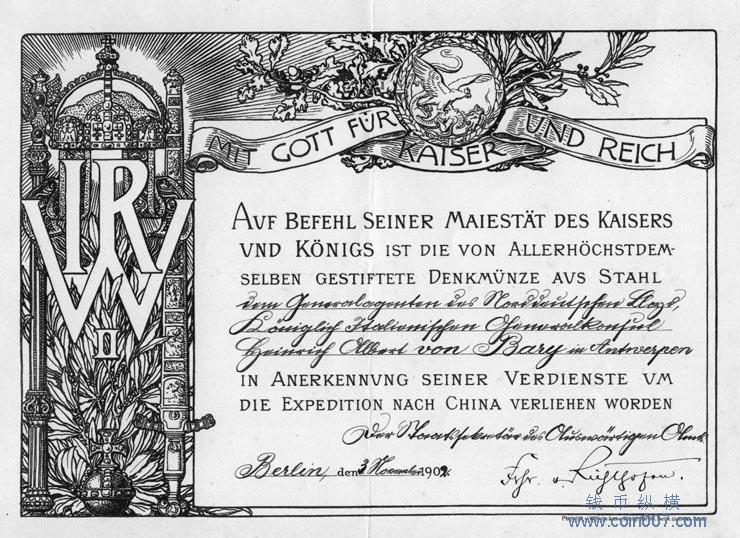 MIT GOTT FÜR KAISER UND REICH
IRW
II
AVF BEFEHL SEINER MAIESTÄT DES KAISERS
VND KÖNIGS IST DIE VON ALLERHÖCHSTDEM-
SELBEN GESTIFTETE DENKMÜNZE AVS STAHL
dem Generalagenten des Norddeutschen Lloyd,
Königlich Italienischen Generalkonsul
Heinrich Albert von Bary in Antwerpen
IN ANERKENNVNG SEINER VERDIENSTE VM
DIE EXPEDITION NACH CHINA VERLIEHEN WORDEN
Der Staatssekretär des Auswärtigen Amts
Berlin, den 3 November 1902.
Frhr. v. Richthofen.
钱币纵横
www.coin007.com